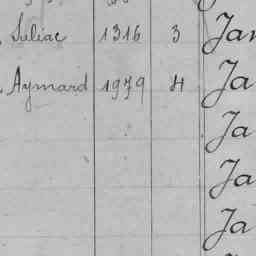 Juliac 1316 3 Jan
Aymard 1979 4 Ja
Ja
Ja
Ja